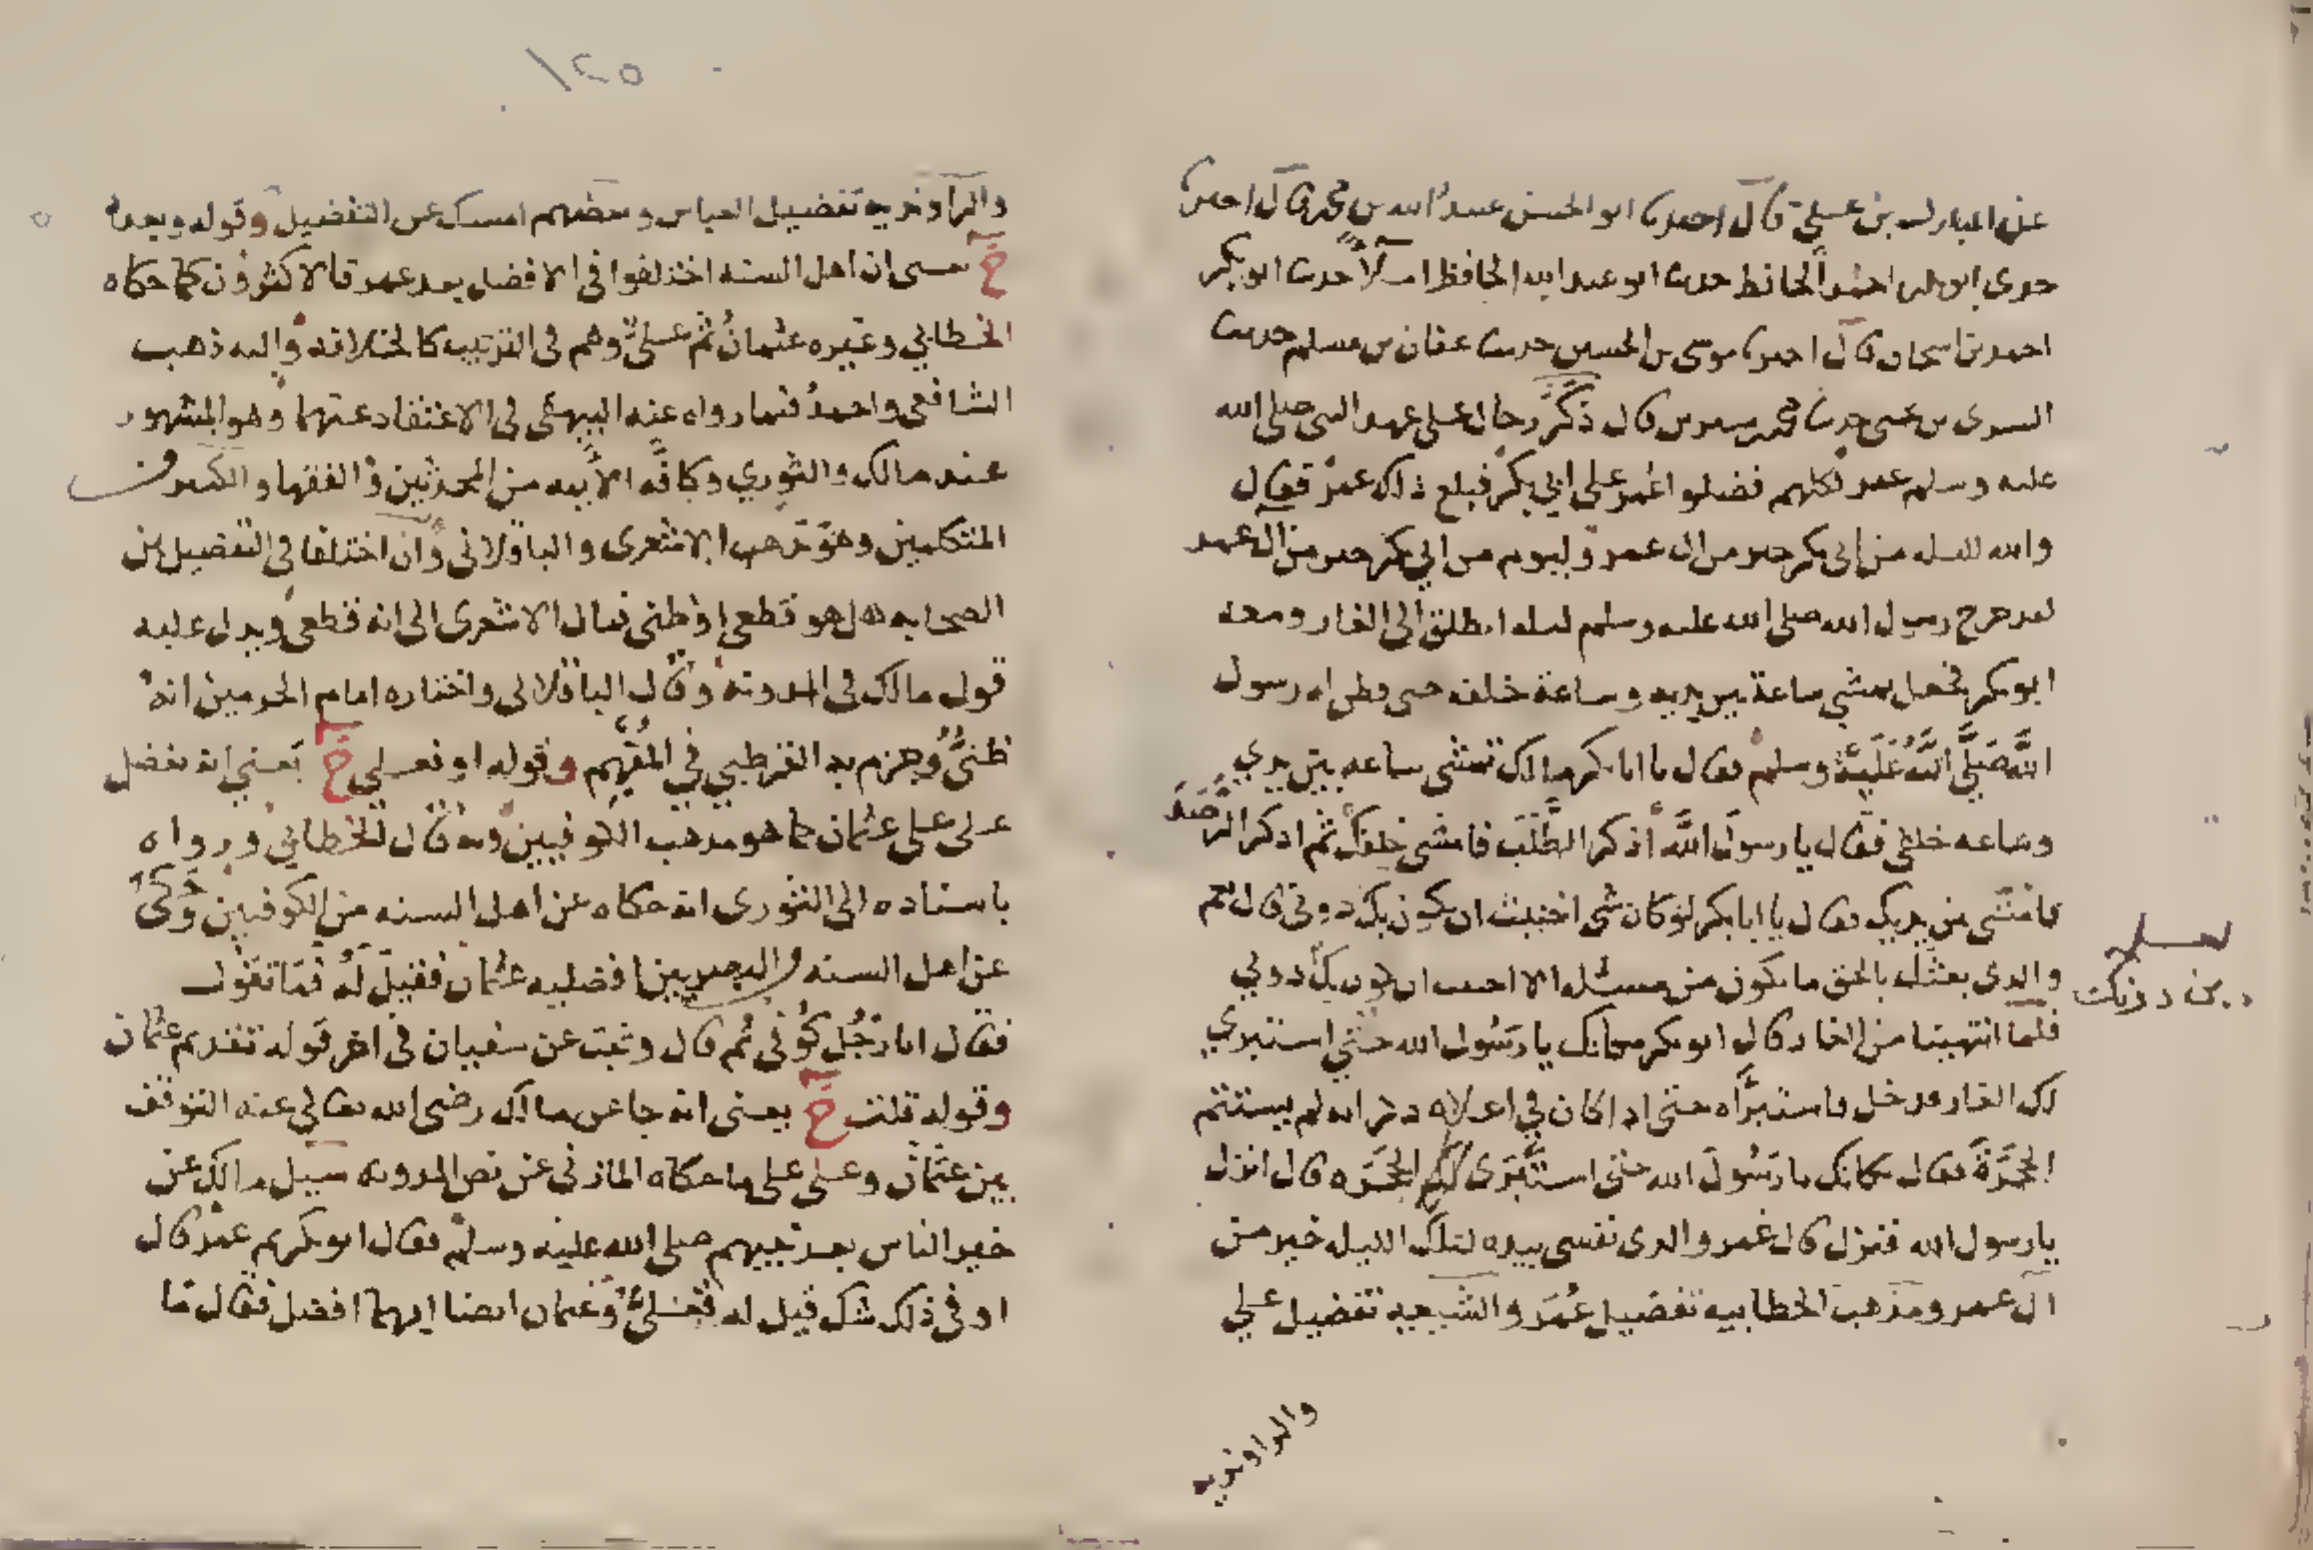 عن المبارك بن علي قال اخبرنا ابو الحسن عبيد الله بن محمد قال اخبرنا
جدي ابو بكر احمد الحافظ حدثنا ابو عبد الله الحافظ املآ حدثنا ابو بكر
احمد بن اسحاق قال اخبرنا موسى بن الحسين حدثنا عفان بن مسلم حدثنا
السرى بن يحيى حدثنا محمد بن سيرين قال ذكر رجال على عهد النبي صلى الله
عليه وسلم عمر فكلهم فضلوا عمر على ابي بكر فبلغ ذلك عمر فقال
والله لليله من ابى بكر خير من ال عمر وليوم من ابي بكر خير من ال عمر
لقد خرج رسول الله صلى الله عليه وسلم ليله انطلق الى الغار ومعه
ابو بكر فجعل يمشي ساعة بين يديه وساعة خلفه حتى فطن له رسول
اللَّه صَلَّى اللَّهُ عَلَيْهِ وسلم فقال يا ابا بكر مالك تمشى ساعه بين يدي
وساعه خلفي فقال يا رسول اللَّه أذكر الطَّلَبَ فامشي خلفك ثم اذكر الرَّصَدَ
فامشى بين يديك فقال يا ابا بكر لو كان شى احببت ان يكون بك دونى قال نعم
والذى بعثك بالحق ما يكون من مسئله الا احببت ان تكون بك دوني
لعله
بى دونك
فلما انتهينا من الغار قال ابو بكر مكانك يا رَسُول الله حتى استبري
لك الغار فدخل فاستبرَّاه حتى اذا كان في اعلاه ذكر انه لم يستتم
الحجَرَةَ فقال مكانك يا رَسُولَ الله حتى استَبْرَى لكم الحجَرَه قال انزل
يا رسول الله فنزل قال عمر والذى نفسى بيده لتلك الليله خير من
ال عمر ومذهب الخطابيه تفضيل عُمَر والشيعيه تفضيل علي
والراونديه
١٢٥
والراونديه تفضيل العباس وبعضهم امسك عن التفضيل وقوله وبعده
خ يعنى ان اهل السنه اختلفوا فى الافضل بعد عمر فالاكثرون كما حكاه
الخطابي وغيره عثمانُ ثم علىٌّ وهم فى الترتيب كالخلافه واليه ذهب
الشافعى واحمدُ فيما رواه عنه البيهقى فى الاعتقاد عنهما وهو المشهور
عند مالك والثوري وكافّه الأيمه من المحدثين والفقها والكثير من
المتكلمين وهو مَذهب الاشعرى والباقلانى وان اختلفا فى التفضيل بين
الصحابه هل هو قطعى او ظنى فمال الاشعرى الى انه قطعى ويدل عليه
قول مالك فى المدونه وقال الباقلانى واختاره امام الحرمين انه
ظنىٌّ وجزم به القرطبي في المُفْهِم وقوله او فعلي خ يَعني انه تفضل
على على عثمان كما هو مذهب الكوفيين وبه قال الخطابي ورواه
باسناده الى الثورى انه حكاه عن اهل السنه من الكوفيين وَحَكَى
عن اهل السنه والبصريين افضليه عثمان فقيل لَهُ فمَا تقول
فقال انا رَجُل كُوفى ثم قال وثبت عن سفيان فى اخر قوله تقديم عثمان
وقوله قلت خ يعنى انه جا عن مالك رضى الله تعالي عنه التوقف
بين عثمان وعلى على ما حكاه المازنى عن نص المدونه سيل مالك عن
خير الناس بعد نبيهم صلى الله عليه وسلم فقال ابو بكر ثم عمر قال
او فى ذلك شك قيل له فعَلىٌّ وعثمان ايضا ايهما افضل فقال ما